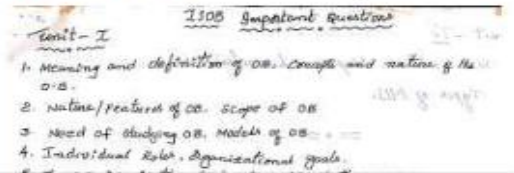 IIOB Important Questions
Unit - I
1. Meaning and definition of OB. Concepts and nature of the
O.B.
2. Nature/Features of OB. Scope of OB
3 Need of studying OB. Models of OB
4. Individual Roles. Organizational goals.